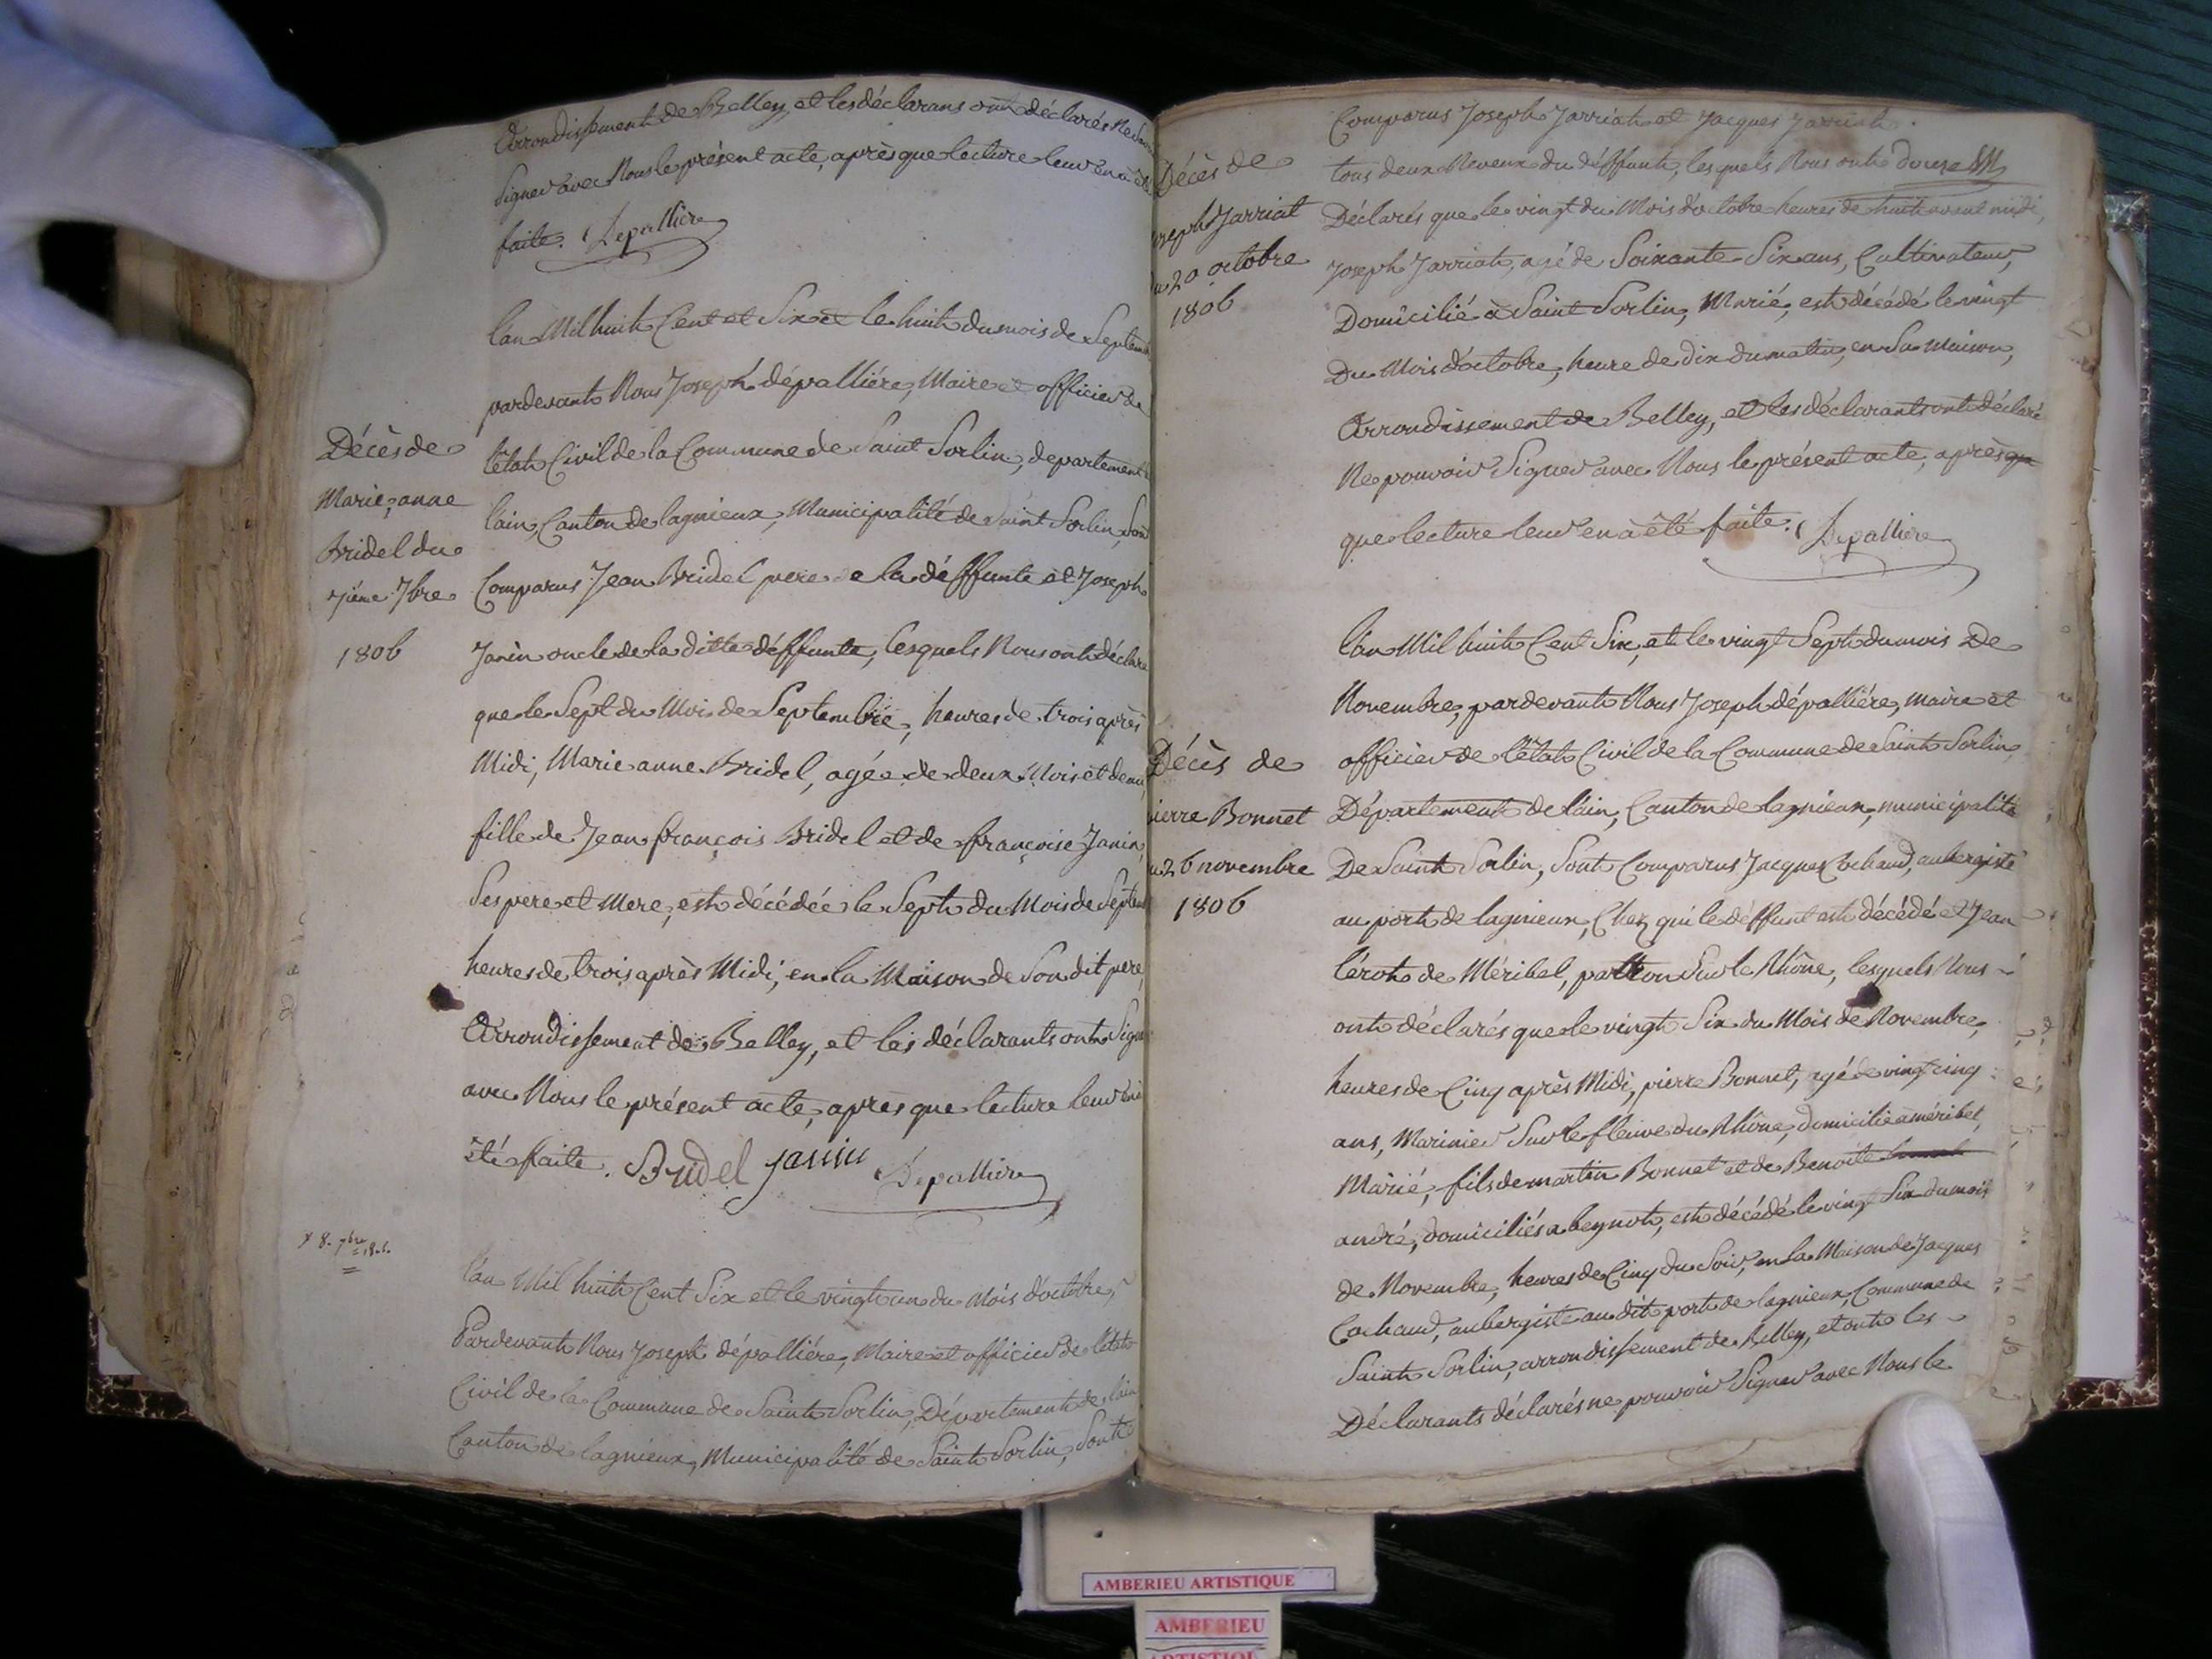 Arrondissement de Belley, et les déclarans ont déclarés Ne
Signer avec Nous le présent acte, après que lecture leur en a été
faite. Depallière
l'an Mil huit Cent et Six et le huit du mois de Septem
pardevant Nous Joseph dépalliére, Maire et officier de
Décès de
Marie, anne
Bridel du
7ième 7bre
1806
létat Civil de la Commune de Saint Sorlin, departement
lain, Canton de lagnieux, Municipalité de Saint Sorlin, Sont
Comparus Jean Bridel pere de la déffunte et Joseph
Janin oncle de la ditte déffunte, lesquels Nous ont déclare
que le Sept du Mois de Septembre, heures de trois après
Midi, Marie anne Bridel, agée de deux Mois et demi,
fille de Jean françois Bridel et de françoise Janin,
Ses pere et Mere, est décédée le Sept du Mois de Septem
heures de trois après Midi, en la Maison de Son dit pere,
Arrondissement de Belley, et les déclarants ont Signé
avec Nous le présent acte, apres que lecture leur en a
été faite. Bridel janin Depallière
8. 7bre 1806.
l'an Mil huit Cent Six et le vingt un du Mois d'octobre,
Pardevant Nous Joseph dépalliére, Maire et officier de létat
Civil de la Commune de Saint Sorlin, Département de lain
Canton de lagnieux, Municipalité de Saint Sorlin, Sont
Comparus Joseph Jarriat et Jacques Jarriat
Décès de
oseph Jarriat
u 20 octobre
1806
tous deux Neveux du déffunt, lesquels Nous ont douze
Déclarés que le vingt du Mois d'octobre heures de huit avant midi,
Joseph Jarriat, agé de Soixante Six ans, Cultivateur,
Domicilié à Saint Sorlin, Marié, est décédé le vingt
Du Mois d'octobre, heure de Dix du matin, en Sa Maison,
Arrondissement de Belley, et les déclarants ont déclaré
Ne pouvoir Signer avec Nous le présent acte, après que
que lecture leur en a été faite. Depallière
l'an Mil huit Cent Six, et le vingt Sept du mois De
Novembre, pardevant Nous Joseph dépalliére, maire et
officier de létat Civil de la Commune de Saint Sorlin,
Décès de
ierre Bonnet
u 26 novembre
1806
Département de lain, Canton de lagnieux, municipalité
De Saint Sorlin, Sont Comparus Jacques Cochaud, aubergiste
au port de lagnieux, Chez qui le déffunt est décédé et Jean
lérot de Méribel, patron Sur le Rhône, lesquels Nous
ont déclarés que le vingt Six du Mois de Novembre,
heures de Cinq après Midi, pierre Bonnet, agé de vingt cinq
ans, Marinier Sur le fleuve du Rhône, domicilié a méribel,
Marié, fils de martin Bonnet et de Benoite
andré, domiciliés a beynot, est décédé le vingt Six du mois
de Novembre, heures de Cinq du Soir, en la Maison de Jacques
Cochaud, aubergiste au dit port de lagnieux, Commune de
Saint Sorlin, arrondissement de Belley, et ont les
Déclarants déclarés ne pouvoir Signer avec Nous le
AMBERIEU ARTISTIQUE
AMBERIEU
ARTISTIQUE